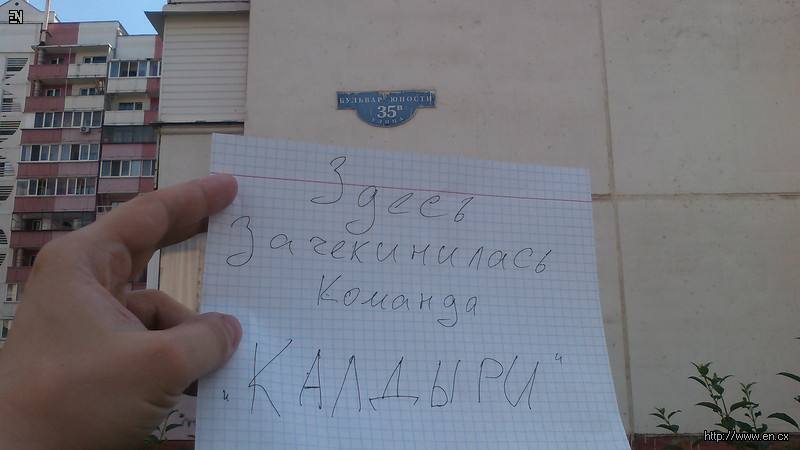 EN
БУЛЬВАР ЮНОСТИ
35в
УЛИЦА
Здесь
Зачекинилась
Команда
"КАЛДЫРИ"
http://www.en.cx